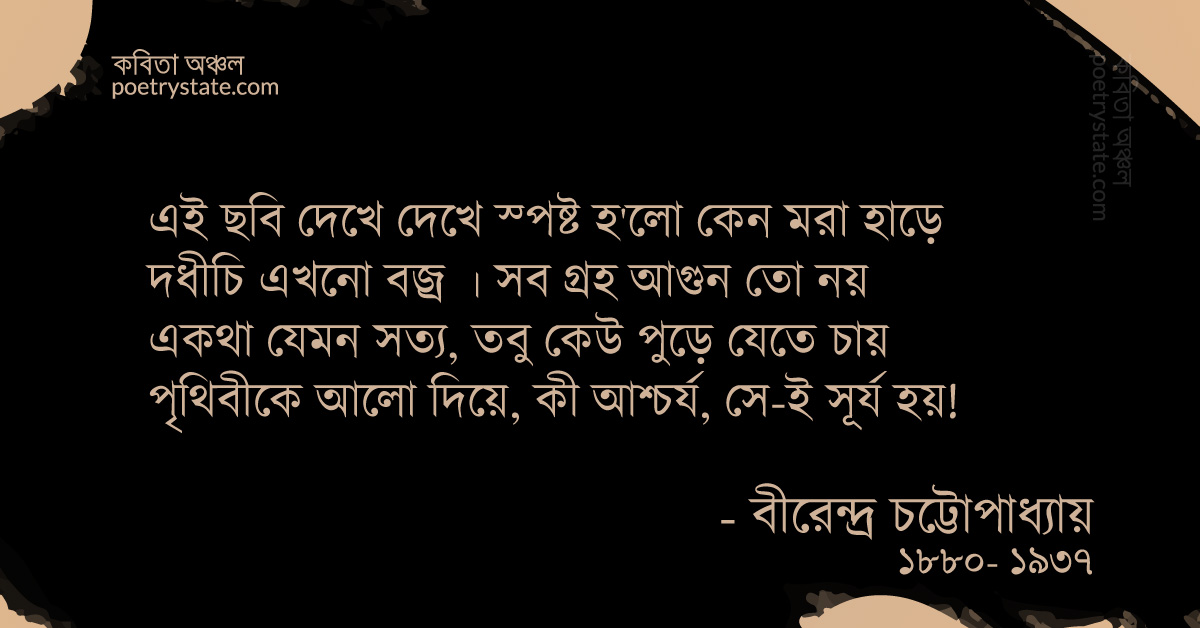 কবিতা অঞ্চল
poetrystate.com
কবিতা অঞ্চল
poetrystate.com
এই ছবি দেখে দেখে স্পষ্ট হ'লো কেন মরা হাড়ে
দধীচি এখনো বজ্র । সব গ্রহ আগুন তো নয়
একথা যেমন সত্য, তবু কেউ পুড়ে যেতে চায়
পৃথিবীকে আলো দিয়ে, কী আশ্চর্য, সে-ই সূর্য হয়!
- বীরেন্দ্র চট্টোপাধ্যায়
১৮৮০- ১৯৩৭